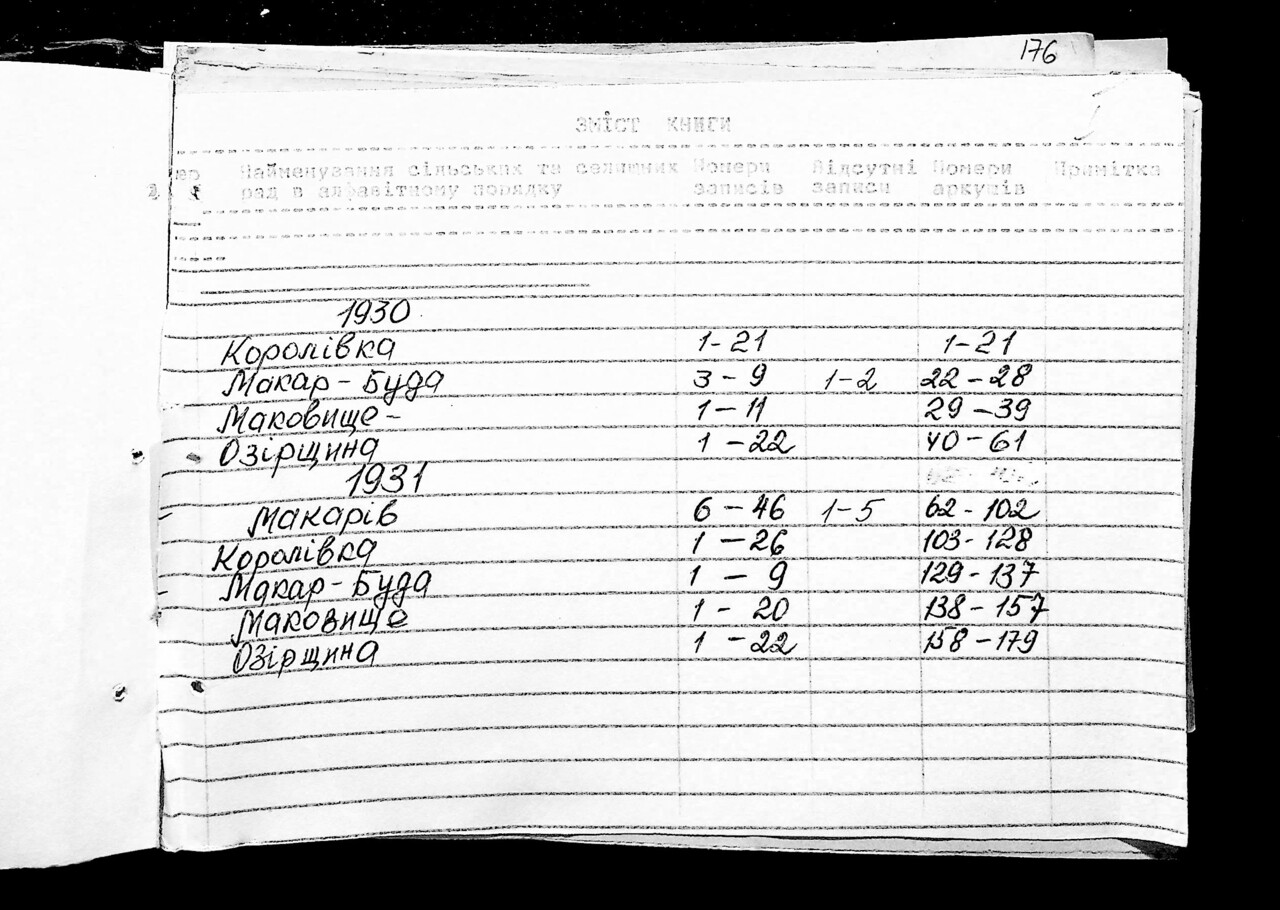 176
ЗМІСТ КНИГИ
Найменування сільських та селищних Номери Відсутні Номери Примітка
рад в алфавітному порядку записів записи аркушів
1930
Королівка 1-21 1-21
Макар-Буда 3-9 1-2 22-28
Маковище- 1-11 29-39
Озірщина 1-22 40-61
1931
Макарів 6-46 1-5 62-102
Королівка 1-26 103-128
Макар-Буда 1-9 129-137
Маковище 1-20 138-157
Озірщина 1-22 158-179